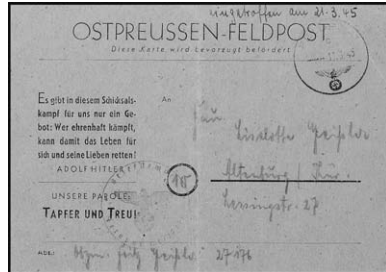 eingetroffen am 21.3.45
OSTPREUSSEN-FELDPOST
Diese Karte wird bevorzugt befördert
Es gibt in diesem Schicksals-
kampf für uns nur ein Ge-
bot: Wer ehrenhaft kämpft,
kann damit das Leben für
sich und seine Lieben retten!
ADOLF HITLER
UNSERE PAROLE:
TAPFER UND TREU!
An
Frau
Liselotte
Altenburg / Thür.
Lessingstr. 27
ABS:
Fritz
27176